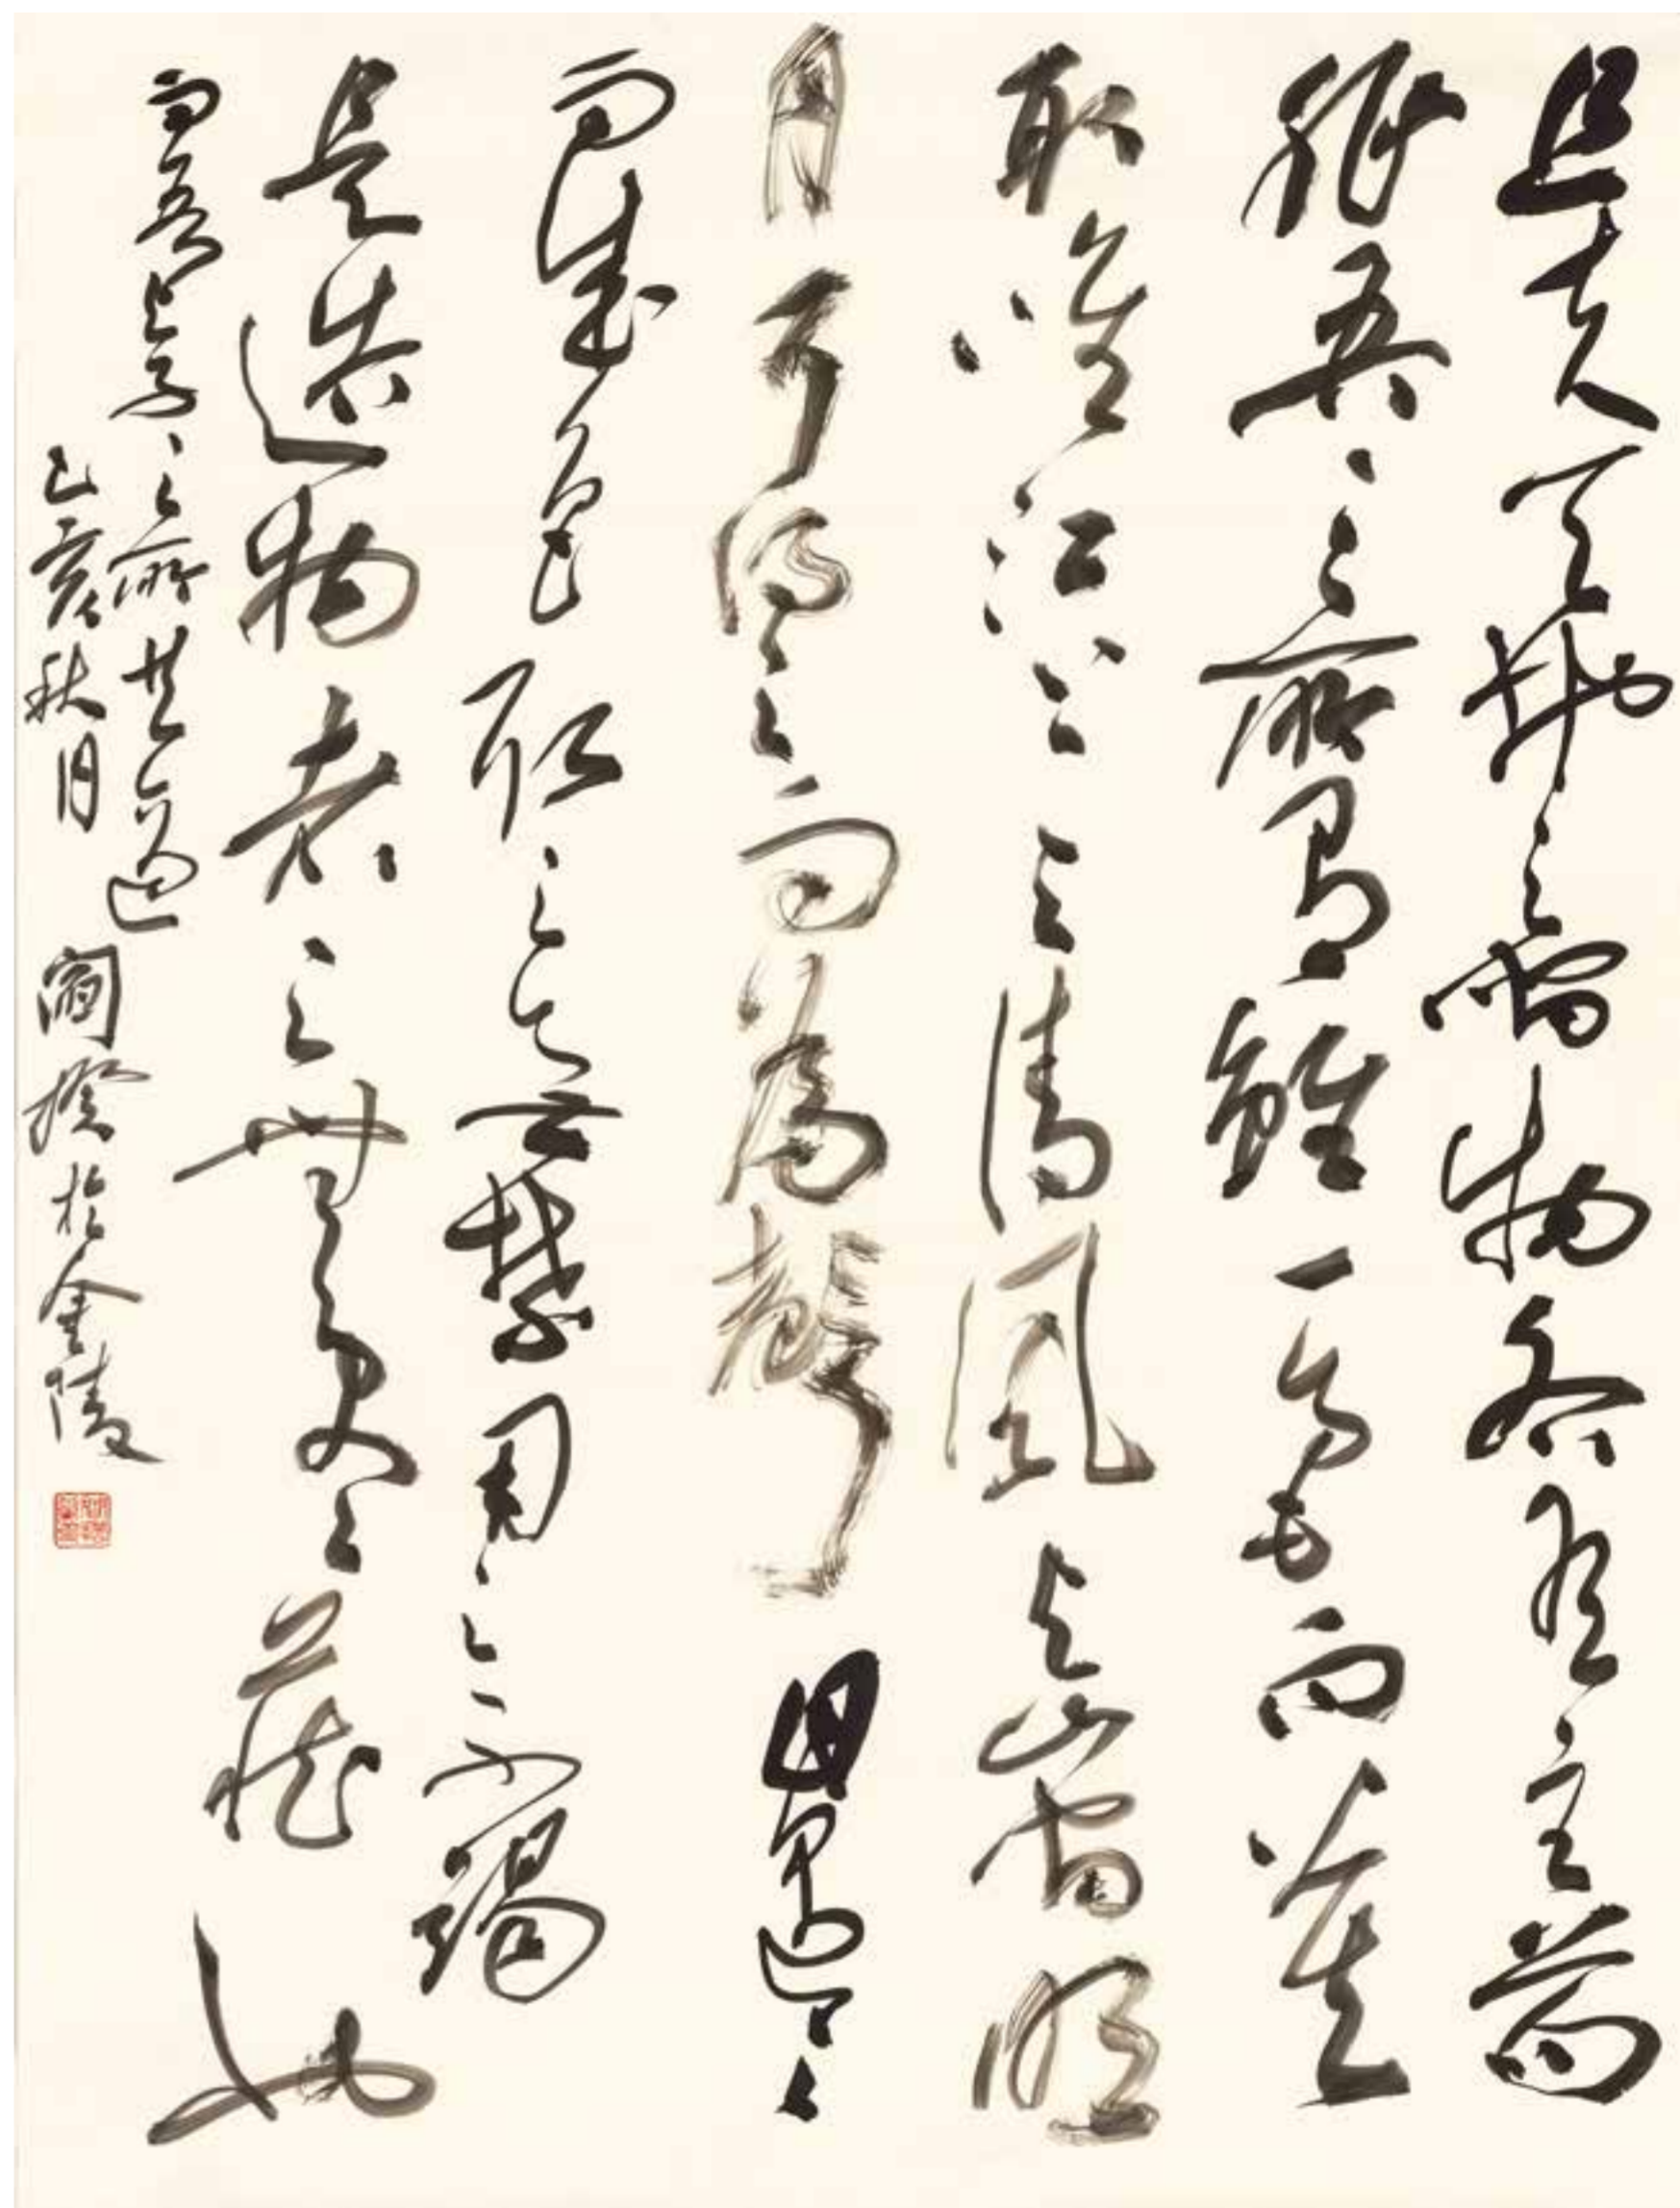 且夫天地之間物各有主苟
非吾之所有雖一毫而莫
取唯江上之清風與山間明
月耳得之而為聲目遇之
而成色取之無禁用之不竭
是造物者之無盡藏也
而吾與子之所共適
己亥秋月闞揆於金陵